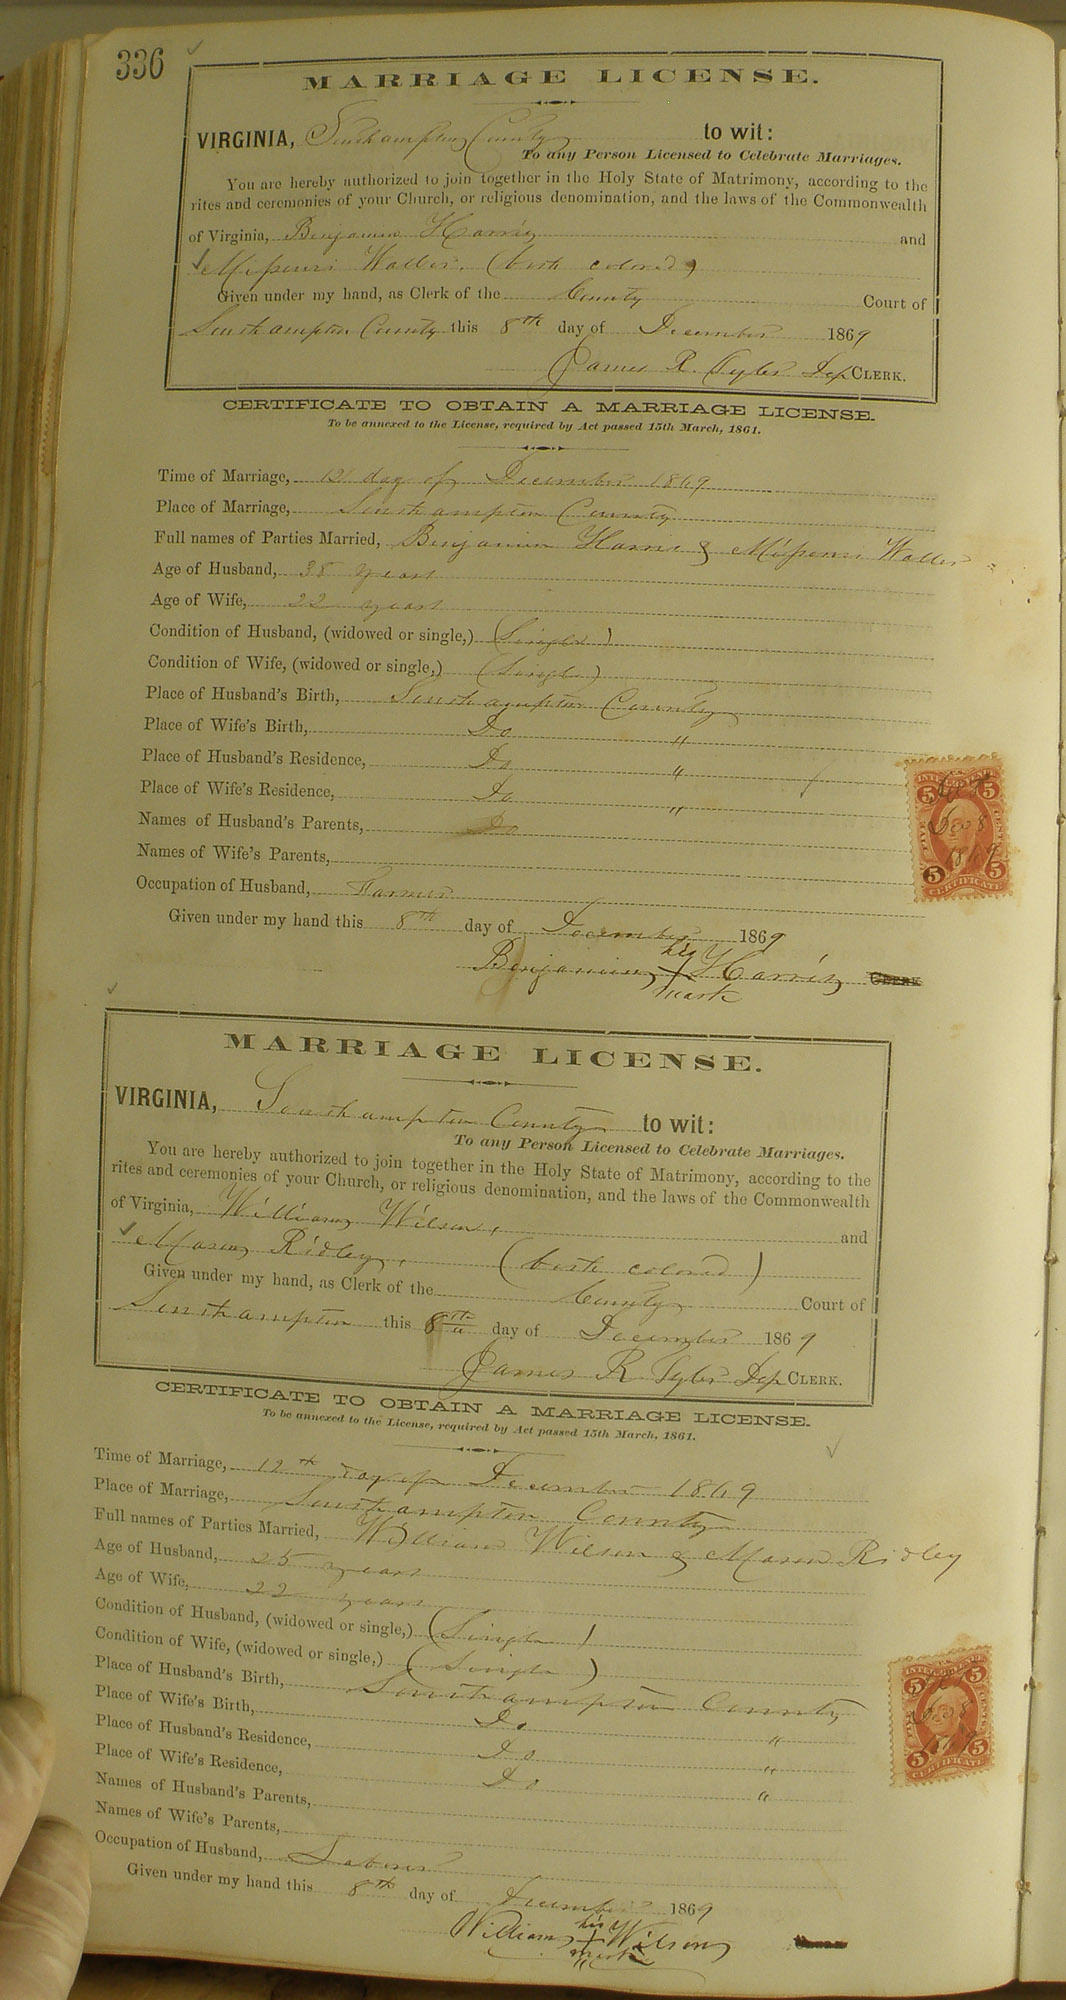 336
MARRIAGE LICENSE.
VIRGINIA, Southampton County to wit:
To any Person Licensed to Celebrate Marriages.
You are hereby authorized to join together in the Holy State of Matrimony, according to the
rites and ceremonies of your Church, or religious denomination, and the laws of the Commonwealth
of Virginia, Benjamin Harris and
Missouri Waller. (both colored)
Given under my hand, as Clerk of the County Court of
Southampton County this 8th day of December 1869
James R. Tyler Dep CLERK.
CERTIFICATE TO OBTAIN A MARRIAGE LICENSE.
To be annexed to the License, required by Act passed 15th March, 1861.
Time of Marriage, day of December 1869
Place of Marriage, Southampton County
Full names of Parties Married, Benjamin Harris & Missouri Waller
Age of Husband, 38 years
Age of Wife, 22 years
Condition of Husband, (widowed or single,) (Single)
Condition of Wife, (widowed or single,) (Single)
Place of Husband's Birth, Southampton County
Place of Wife's Birth, Do "
Place of Husband's Residence, Do "
Place of Wife's Residence, Do "
Names of Husband's Parents, Do
Names of Wife's Parents,
Occupation of Husband, Farmer
Given under my hand this 8th day of December 1869
his
Benjamin X Harris CLERK
mark
5 INTER. REV. 5
Dec 8
1869
FIVE CENTS
5 5
CERTIFICATE
MARRIAGE LICENSE.
VIRGINIA, Southampton County to wit:
To any Person Licensed to Celebrate Marriages.
You are hereby authorized to join together in the Holy State of Matrimony, according to the
rites and ceremonies of your Church, or religious denomination, and the laws of the Commonwealth
of Virginia, William Wilson, and
Mason Ridley, (both colored)
Given under my hand, as Clerk of the County Court of
Southampton this 8th day of December 1869
James R Tyler Dep CLERK.
CERTIFICATE TO OBTAIN A MARRIAGE LICENSE.
To be annexed to the License, required by Act passed 15th March, 1861.
Time of Marriage, 12th day of December 1869
Place of Marriage, Southampton County
Full names of Parties Married, William Wilson & Mason Ridley
Age of Husband, 25 years
Age of Wife, 22 years
Condition of Husband, (widowed or single,) (Single)
Condition of Wife, (widowed or single,) (Single)
Place of Husband's Birth, Southampton County
Place of Wife's Birth, Do "
Place of Husband's Residence, Do "
Place of Wife's Residence, Do "
Names of Husband's Parents,
Names of Wife's Parents,
Occupation of Husband, Laborer
Given under my hand this 8th day of December 1869
his
William X Wilson
mark
5 INTER. REV. 5
Dec 8
1869
5 5
CERTIFICATE